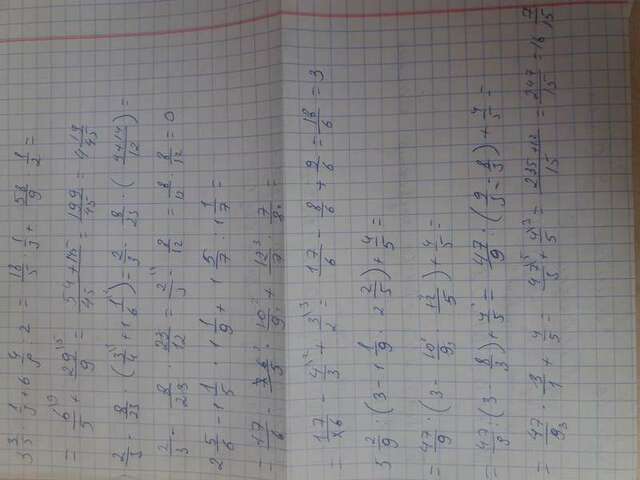 3 3/5 · 1/3 + 6 4/9 · 1/2 = 18/5 · 1/3 + 58/9 · 1/2 =
= 6/5 + 29/9 = (54+145)/45 = 199/45 = 4 19/45
2/3 - 8/23 · (3/4 + 1 1/6) = 2/3 - 8/23 · ((9+14)/12) =
2/3 - 8/23 · 23/12 = 2/3 - 8/12 = 8/12 - 8/12 = 0
2 5/6 - 1 1/5 · 1 1/9 + 1 5/7 · 1/7 =
= 17/6 - 6/5 · 10/9 + 12/7 · 7/8 =
= 17/6 - 4/3 + 3/2 = 17/6 - 8/6 + 9/6 = 18/6 = 3
5 2/9 : (3 - 1 1/9 · 2 2/5) + 4/5 =
= 47/9 : (3 - 10/9 · 12/5) + 4/5 =
= 47/9 : (3 - 8/3) + 4/5 = 47/9 : (9/3 - 8/3) + 4/5 =
= 47/9 · 3/1 + 4/5 = 47/3 + 4/5 = (235+12)/15 = 247/15 = 16 7/15